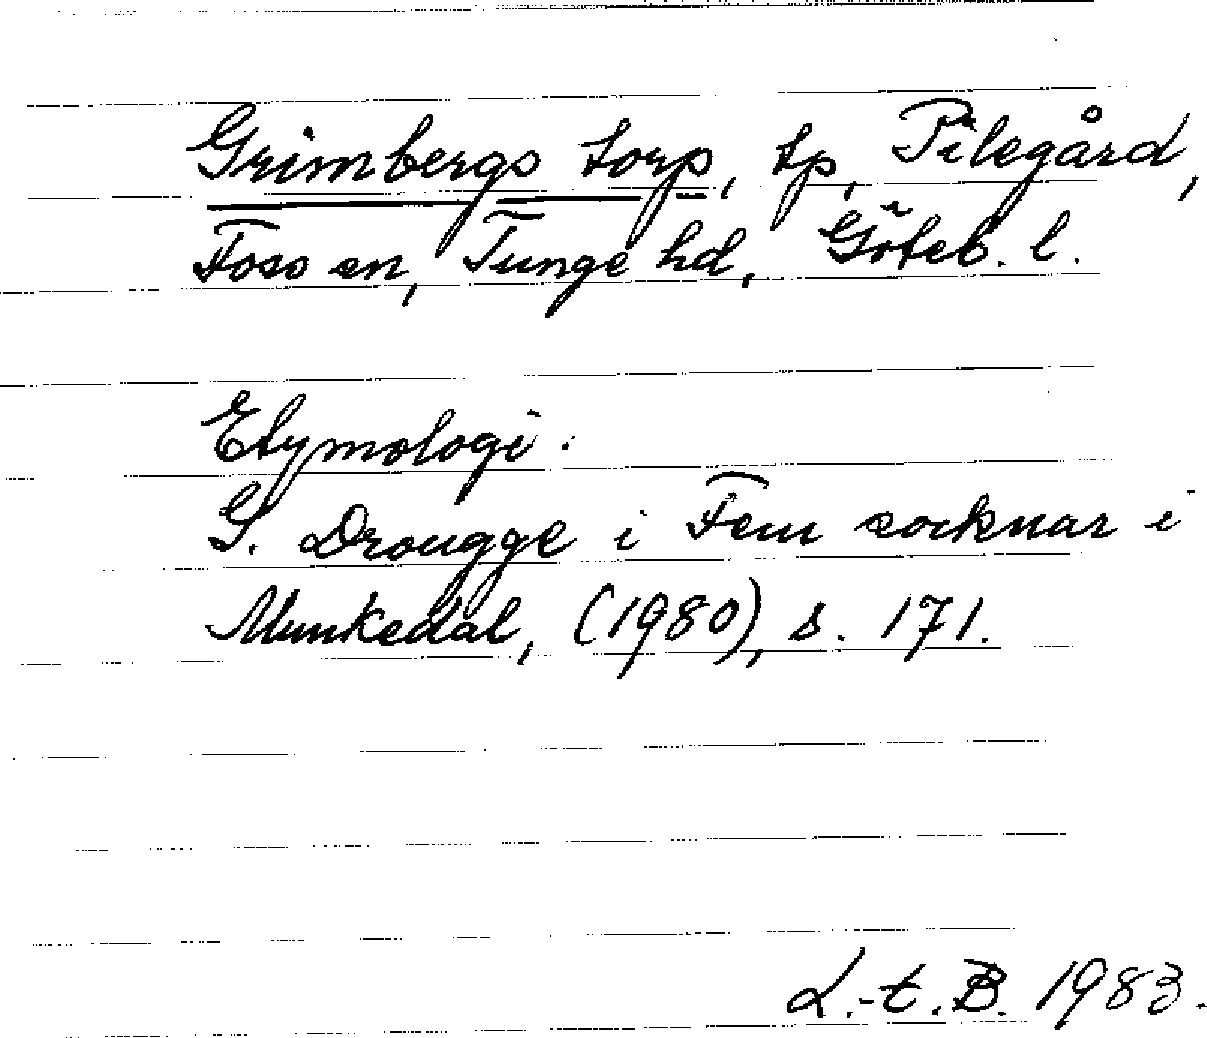 Grimbergs torp, tp, Pilegård,
Foss sn, Tunge hd, Göteb. l.
Etymologi:
G. Drougge i Fem socknar i
Munkedal, (1980), s. 171.
L.-t. B. 1983.